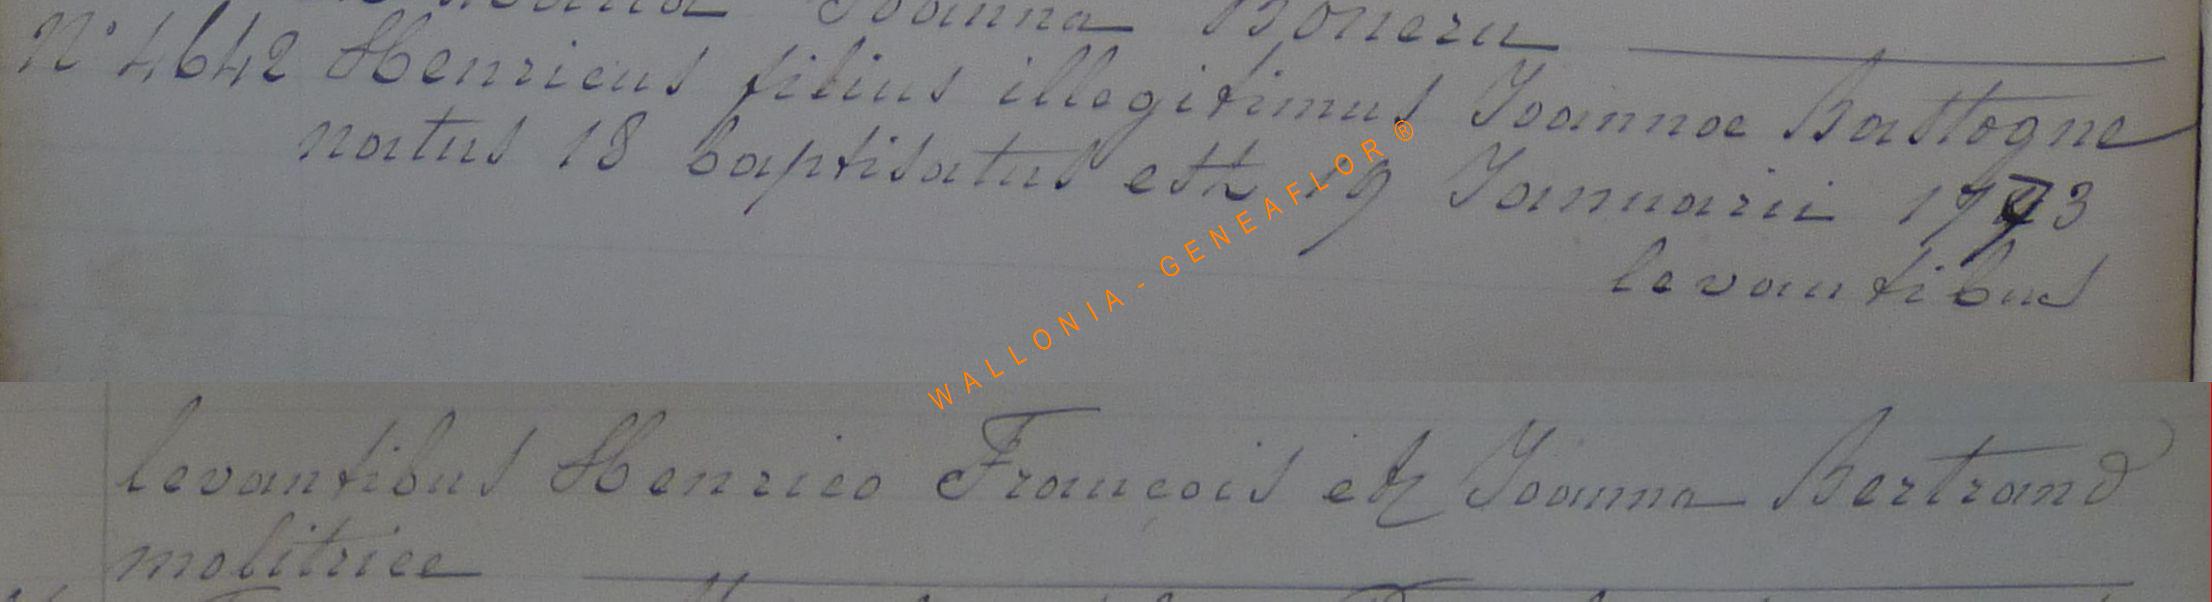 Joanna Boneru
N° 4642 Henricus filius illegitimus Joannae Bastogne
natus 18 baptisatus est 19 Januarii 1773
levantibus
WALLONIA - GENEAFLOR ®
levantibus Henrico François et Joanna Bertrand
molitrice